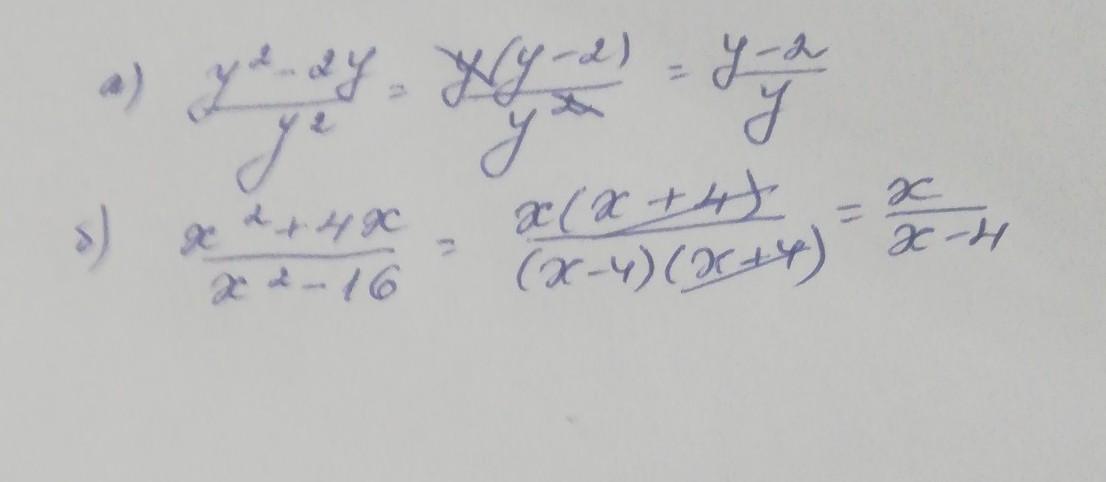 а) (y² - 2y)/y² = y(y-2)/y² = (y-2)/y
б) (x² + 4x)/(x² - 16) = x(x+4)/((x-4)(x+4)) = x/(x-4)